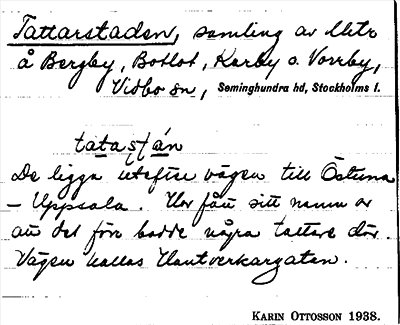 Tattarstaden, samling av lhtr
å Bergby, Botlot, Karby o. Vorrby,
Vidbo sn, Seminghundra hd, Stockholms l.
tatastán
De ligga utefter vägen till Östuna
– Uppsala. Har fått sitt namn av
att det förr bodde några tattare där.
Vägen kallas Hantverkargatan.
KARIN OTTOSSON 1938.